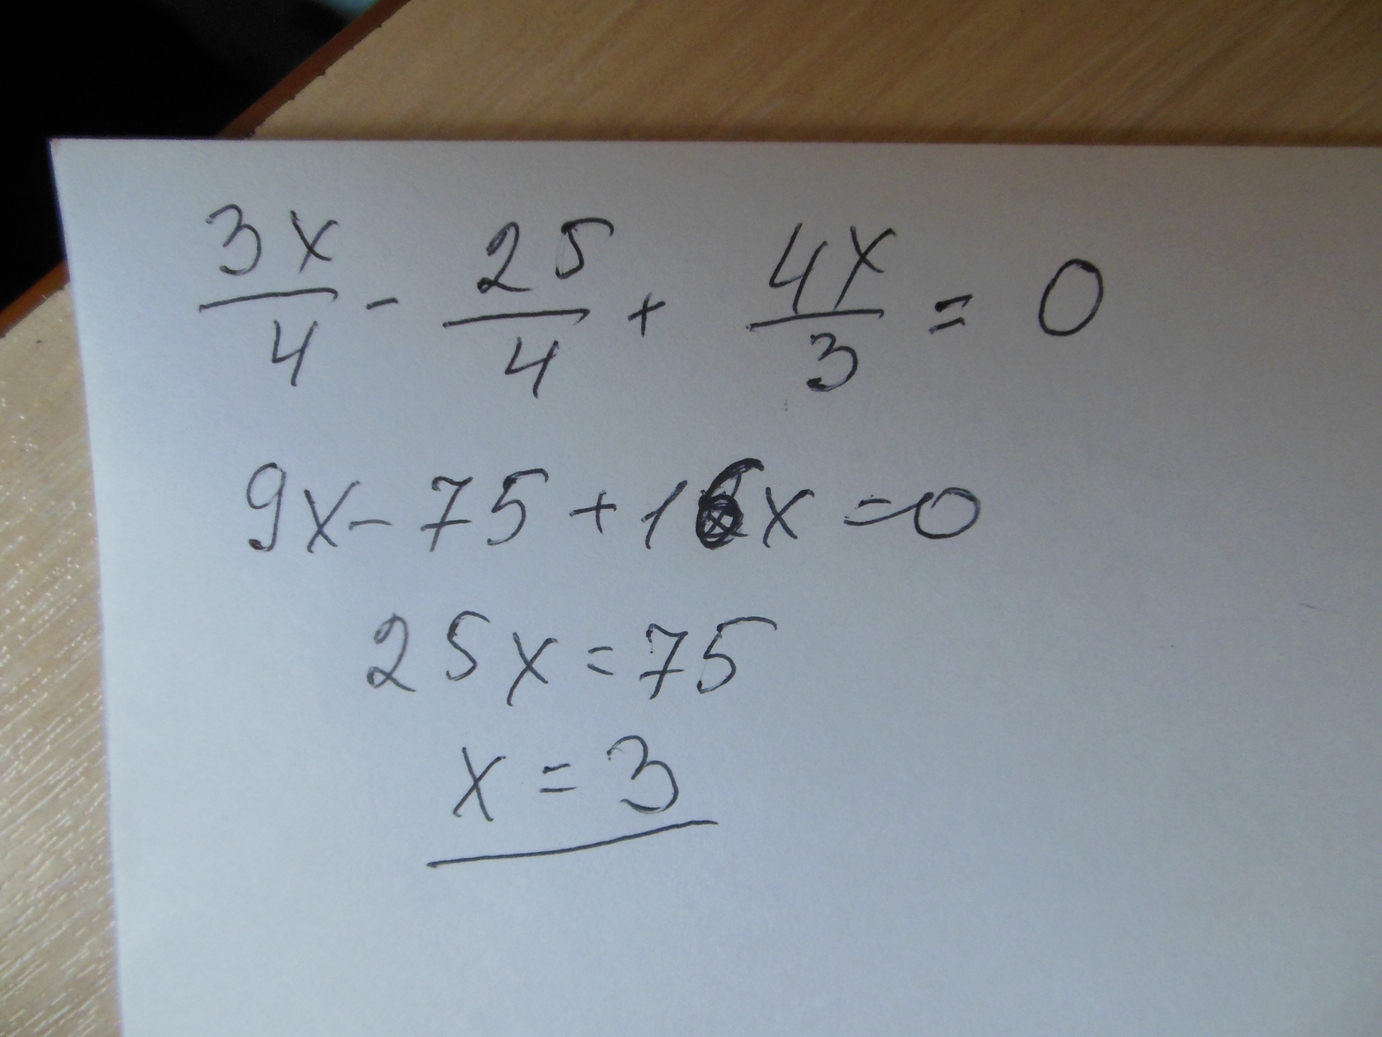 3x/4 - 25/4 + 4x/3 = 0
9x - 75 + 16x = 0
25x = 75
x = 3